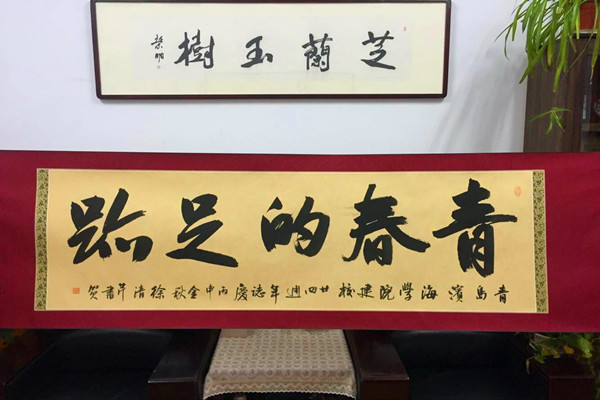 芝蘭玉樹
青春的足跡
青島濱海學院建校廿四週年誌慶丙申金秋徐清芹書賀